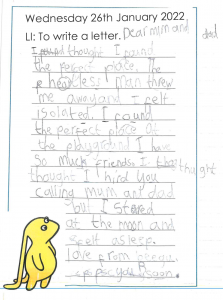 Wednesday 26th January 2022
LI: To write a letter. Dear mum and dad
I thought I found
the perfect place. The
heartless man threw
me away and I felt
isolated. I found
the perfect place at
the playground I have
so much friends. I thought
thought I hird you
calling mum ant dad
but I stared
at the moon and
felt asleep.
love from